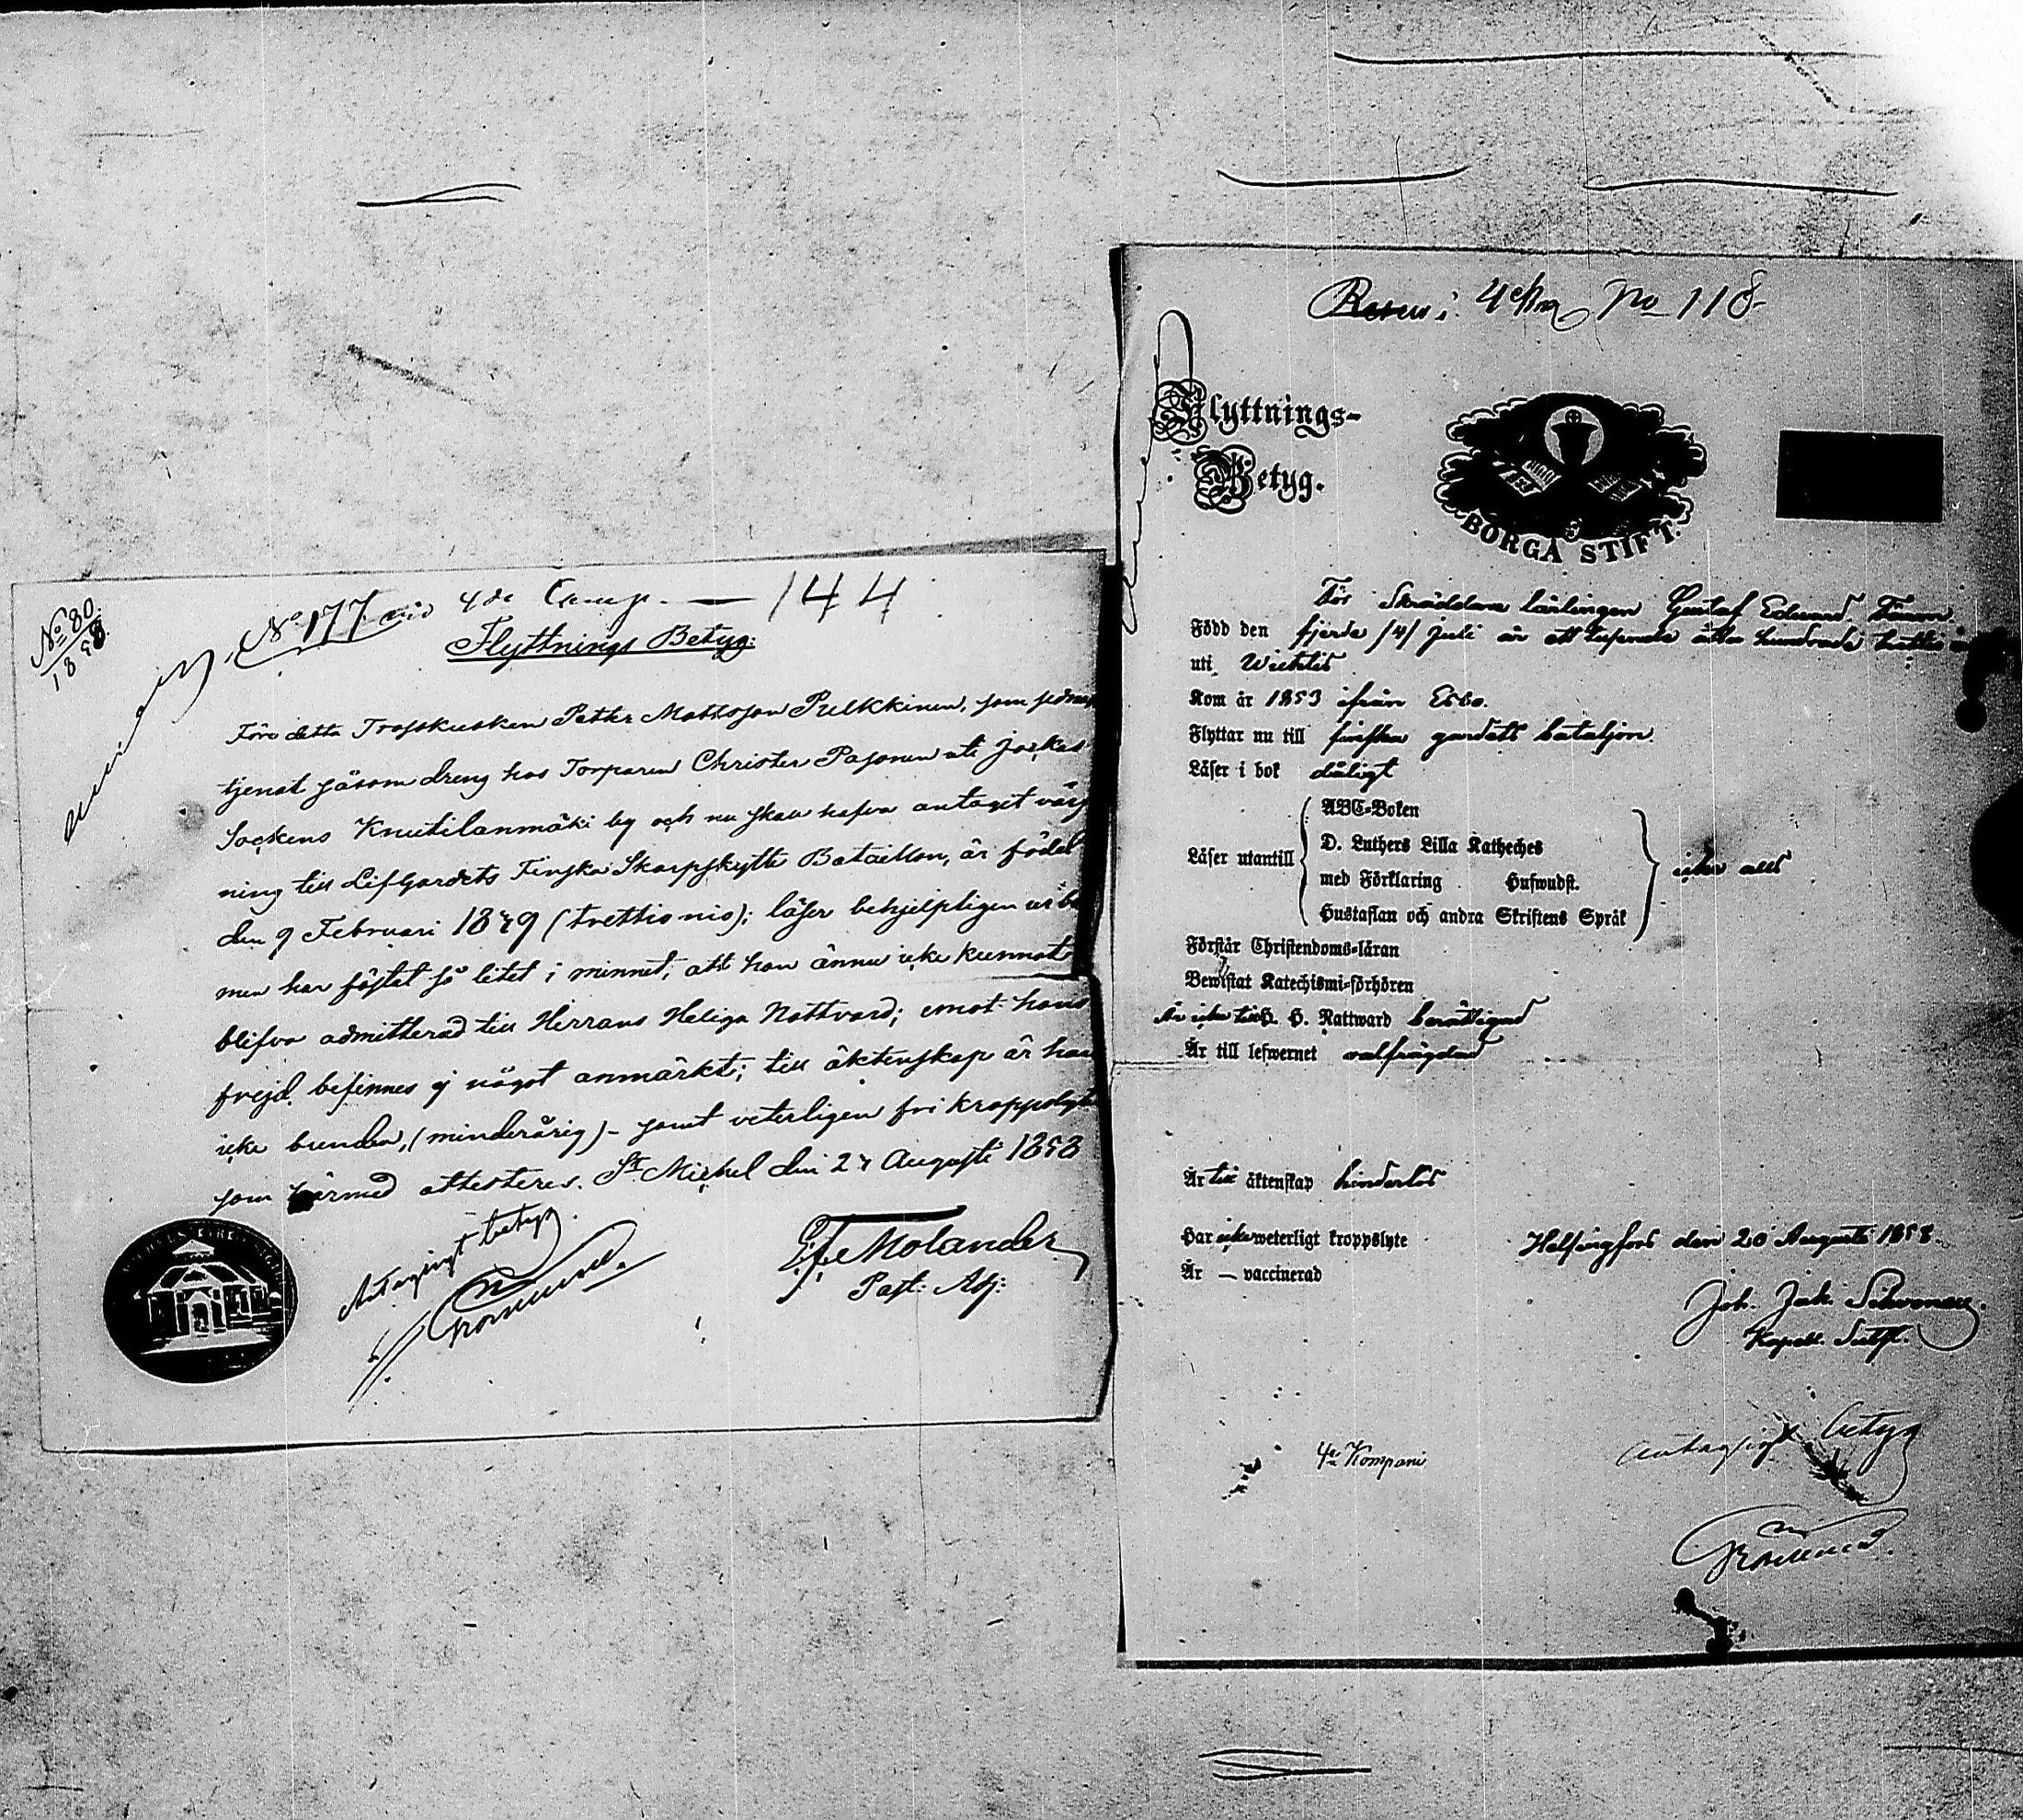 No 80
1858
No 177 vid 4de Comp. — 144
Flyttnings Betyg:
Före detta Trosskusken Petter Mattsson Pulkkinen, som sednast
tjenat såsom dreng hos Torparen Christer Pasonen uti Jockas
Sockens Knutilanmäki by och nu skall hafva antagit värf-
ning till Lifgardets Finska Skarpskytte Bataillon, är född
den 9 Februari 1839 (trettionio); läser behjelpligen ur bok
men har fästat så litet i minnet, att han ännu icke kunnat
blifva admitterad till Herrans Heliga Nattvard; emot hans
frejd befinnes ej något anmärkt; till äktenskap är han
icke bunden, (minderårig) - samt veterligen fri kroppslyte
som härmed attesteras. St Michel den 27 Augusti 1858
Antagligt betyg.
Molander
Past. Adj:
4 No 118
Flyttnings-
Betyg.
BORGÅ STIFT.
För Skräddare lärlingen Gustaf Edvard
Född den fjerde /4/ Juli år ett tusende åtta hundrade
uti Wichtis
Kom år 1853 ifrån Esbo.
Flyttar nu till finska gardets bataljon.
Läser i bok dåligt
Läser utantill
ABC-Boken
D. Luthers Lilla Katheches
med Förklaring Hufwudst.
Hustaflan och andra Skriftens Språk
icke alls
Förstår Christendoms-läran
Bewistat Katechismi-förhören
Är icke till H. H. Nattward berättigad
Är till lefwernet välfrägdad
Är till äktenskap hinderlös
Har icke weterligt kroppslyte
Helsingfors den 20 Augusti 1858.
Är — vaccinerad
Joh. Jak.
Kapell.
4de Kompani
Antagligt betyg